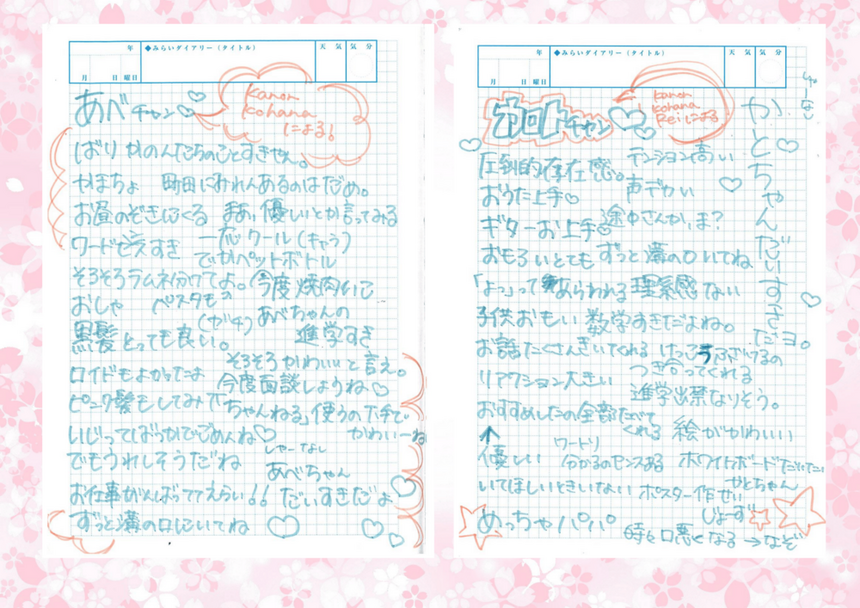 年
◆みらいダイアリー（タイトル）
天 気
気 分
月 日 曜日
あべチャン♡
kanon
kohana
による！
ばり かのんたちのことすきやん。
かまちょ 町田にみれんあるのはだめ。
お昼のぞきにくる まあ、優しいとか言ってみる
ワードセンスすき 一応クール（キャラ）
でかペットボトル
そろそろラムネ分けてよ。今度焼肉いこ
おしゃ ベスタもっ
（ガチ） あべちゃんの
黒髪とっても良い。 進学すき
そろそろかわいいと言え。
ロイドもよかったよ
今度面談しようね♡
ピンク髪もしてみて ちゃんねる、使うの下手で
かわいーね
いじってばっかでごめんね♡
しゃーなし
でもうれしそうだね
あべちゃん
お仕事がんばっててえらい！！ だいすきだよ
ずっと溝の口にいてね
年
◆みらいダイアリー（タイトル）
天 気
気 分
月 日 曜日
カロトチャン♡
kanon
kohana
Reiによる
しゃーなし
かとちゃんだいすきだヨ。
圧倒的存在感。 テンション高い
おうた上手♡ 声デカい
ギターお上手♡ 途中さんかい、ま？
おもろいとても ずっと溝の口いてね
「よっ」って あらわれる 理系感ない
子供おもい 数学すきだよね。
お話たくさんきいてくれる けっこうふざけるの
つき合ってくれる
リアクション大きい
進学出禁なりそう。
おすすめしたの全部たべて
くれる 絵がかわいい
↑ ワードリ
優しい 分かるのセンスある ホワイトボードだいたい
いてほしいときいない ポスター作せい
かとちゃん
じょーず
めっちゃパパ
時々口悪くなる→なぞ